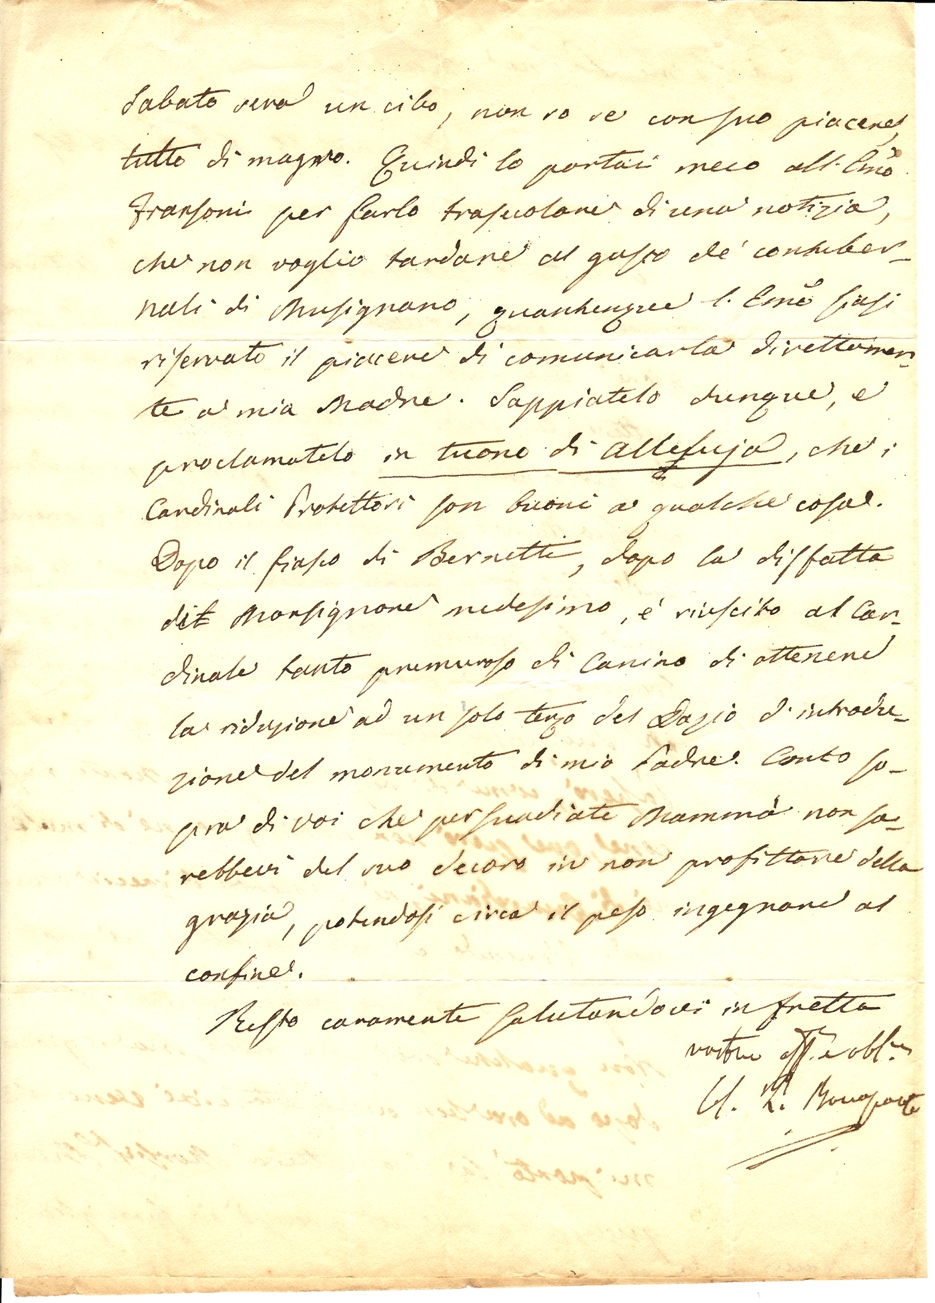 Sabato sera un cibo, non so se con suo piacere,
tutto di magro. Quindi lo portai meco all'Emo
Fransoni per farlo trasecolare di una notizia,
che non voglio tardare al gusto de' contuber-
nali di Musignano, quantunque l'Emo siasi
riservato il piacere di comunicarla direttamen-
te a mia Madre. Sappiatelo dunque, e
proclamatelo in tuono di alleluja, che i
Cardinali Protettori son buoni a qualche cosa.
Dopo il fiasco di Bernetti, dopo la disfatta
di Monsignore medesimo, è riuscito al Car-
dinale tanto premuroso di Canino di ottenere
la riduzione ad un solo terzo del Dazio d'introdu-
zione del monumento di mio Padre. Conto so-
pra di voi che persuadiate Mammà non sa-
rebbevi del suo decoro in non profittare della
grazia, potendosi circa il peso ingegnare al
confine.
Resto caramente salutandovi in fretta
vostro Aff. e obbl.
C. L. Bonaparte